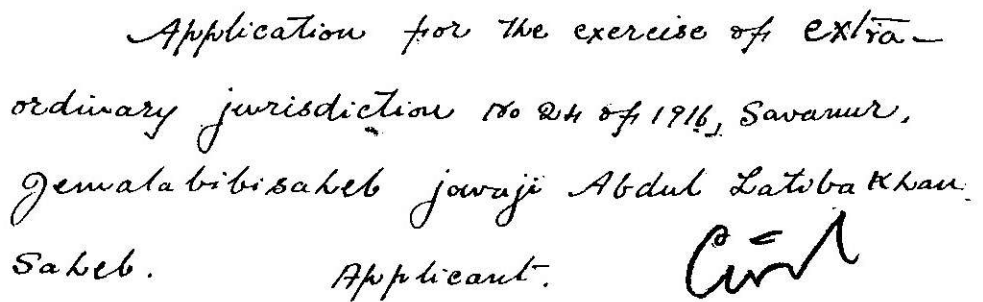 Application for the exercise of extra-
ordinary jurisdiction No 24 of 1916, Savanur.
Jemalabibisaheb jawaji Abdul Latibakhan
Saheb. Applicant. Civil